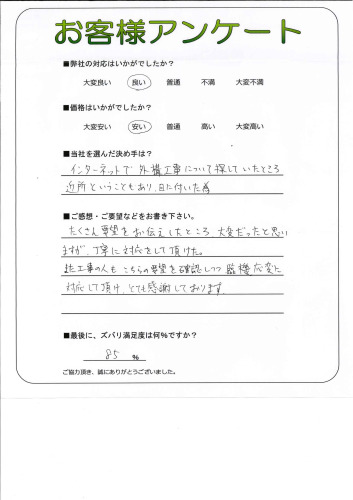 お客様アンケート
■弊社の対応はいかがでしたか？
大変良い 良い 普通 不満 大変不満
■価格はいかがでしたか？
大変安い 安い 普通 高い 大変高い
■当社を選んだ決め手は？
インターネットで外構工事について探していたところ
近所ということもあり、目に付いた為
■ご感想・ご要望などをお書き下さい。
たくさん要望をお伝えしたところ大変だったと思い
ますが、丁寧に対応をして頂けた。
工事の人もこちらの要望を確認しつつ臨機応変に
対応して頂け、とても感謝しております。
■最後に、ズバリ満足度は何%ですか？
85 %
ご協力頂き、誠にありがとうございました。